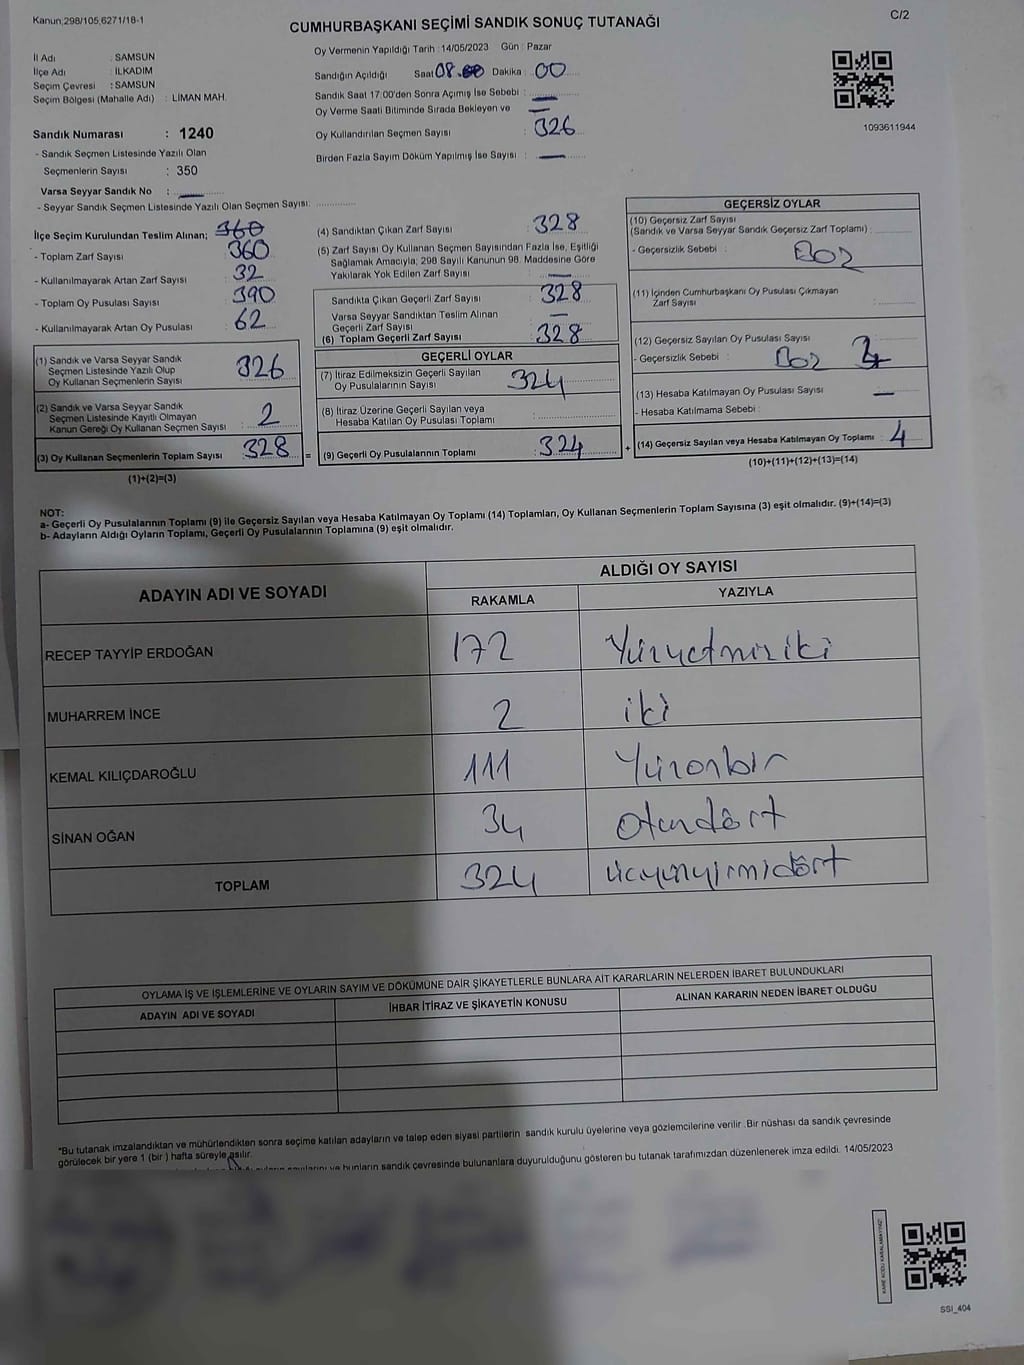 Kanun,298/105,6271/18-1
C/2
CUMHURBAŞKANI SEÇİMİ SANDIK SONUÇ TUTANAĞI
İl Adı : SAMSUN
İlçe Adı : İLKADIM
Seçim Çevresi : SAMSUN
Seçim Bölgesi (Mahalle Adı) : LİMAN MAH.
Oy Vermenin Yapıldığı Tarih : 14/05/2023 Gün : Pazar
Sandığın Açıldığı Saat 08.00 Dakika : 00
Sandık Saat 17:00'den Sonra Açımış İse Sebebi : —
Oy Verme Saati Bitiminde Sırada Bekleyen ve —
Oy Kullandırılan Seçmen Sayısı : 326
Birden Fazla Sayım Döküm Yapılmış İse Sayısı : —
1093611944
Sandık Numarası : 1240
- Sandık Seçmen Listesinde Yazılı Olan
Seçmenlerin Sayısı : 350
Varsa Seyyar Sandık No : —
- Seyyar Sandık Seçmen Listesinde Yazılı Olan Seçmen Sayısı:
İlçe Seçim Kurulundan Teslim Alınan; 360
- Toplam Zarf Sayısı 360
- Kullanılmayarak Artan Zarf Sayısı 32
- Toplam Oy Pusulası Sayısı 390
- Kullanılmayarak Artan Oy Pusulası : 62
(1) Sandık ve Varsa Seyyar Sandık
Seçmen Listesinde Yazılı Olup
Oy Kullanan Seçmenlerin Sayısı 326
(2) Sandık ve Varsa Seyyar Sandık
Seçmen Listesinde Kayıtlı Olmayan
Kanun Gereği Oy Kullanan Seçmen Sayısı : 2
(3) Oy Kullanan Seçmenlerin Toplam Sayısı : 328 =
(1)+(2)=(3)
(4) Sandıktan Çıkan Zarf Sayısı : 328
(5) Zarf Sayısı Oy Kullanan Seçmen Sayısından Fazla İse, Eşitliği
Sağlamak Amacıyla; 298 Sayılı Kanunun 98. Maddesine Göre
Yakılarak Yok Edilen Zarf Sayısı : —
Sandıkta Çıkan Geçerli Zarf Sayısı : 328
Varsa Seyyar Sandıktan Teslim Alınan
Geçerli Zarf Sayısı —
(6) Toplam Geçerli Zarf Sayısı : 328
GEÇERLİ OYLAR
(7) İtiraz Edilmeksizin Geçerli Sayılan
Oy Pusulalarının Sayısı : 324
(8) İtiraz Üzerine Geçerli Sayılan veya
Hesaba Katılan Oy Pusulası Toplamı :
(9) Geçerli Oy Pusulalarının Toplamı : 324 +
GEÇERSİZ OYLAR
(10) Geçersiz Zarf Sayısı
(Sandık ve Varsa Seyyar Sandık Geçersiz Zarf Toplamı) :
- Geçersizlik Sebebi :
(11) İçinden Cumhurbaşkanı Oy Pusulası Çıkmayan
Zarf Sayısı :
(12) Geçersiz Sayılan Oy Pusulası Sayısı
- Geçersizlik Sebebi :
(13) Hesaba Katılmayan Oy Pusulası Sayısı : —
- Hesaba Katılmama Sebebi :
(14) Geçersiz Sayılan veya Hesaba Katılmayan Oy Toplamı : 4
(10)+(11)+(12)+(13)=(14)
NOT:
a- Geçerli Oy Pusulalarının Toplamı (9) ile Geçersiz Sayılan veya Hesaba Katılmayan Oy Toplamı (14) Toplamları, Oy Kullanan Seçmenlerin Toplam Sayısına (3) eşit olmalıdır. (9)+(14)=(3)
b- Adayların Aldığı Oyların Toplamı, Geçerli Oy Pusulalarının Toplamına (9) eşit olmalıdır.
ADAYIN ADI VE SOYADI
ALDIĞI OY SAYISI
RAKAMLA YAZIYLA
RECEP TAYYİP ERDOĞAN 172 Yüzyetmişiki
MUHARREM İNCE 2 iki
KEMAL KILIÇDAROĞLU 111 Yüzonbir
SİNAN OĞAN 34 Otuzdört
TOPLAM 324 üçyüzyirmidört
OYLAMA İŞ VE İŞLEMLERİNE VE OYLARIN SAYIM VE DÖKÜMÜNE DAİR ŞİKAYETLERLE BUNLARA AİT KARARLARIN NELERDEN İBARET BULUNDUKLARI
ADAYIN ADI VE SOYADI İHBAR İTİRAZ VE ŞİKAYETİN KONUSU ALINAN KARARIN NEDEN İBARET OLDUĞU
*Bu tutanak imzalandıktan ve mühürlendikten sonra seçime katılan adayların ve talep eden siyasi partilerin sandık kurulu üyelerine veya gözlemcilerine verilir .Bir nüshası da sandık çevresinde
görülecek bir yere 1 (bir ) hafta süreyle asılır.
bunların sandık çevresinde bulunanlara duyurulduğunu gösteren bu tutanak tarafımızdan düzenlenerek imza edildi. 14/05/2023
KARE KODU KARALAMAYINIZ!
SSI_404